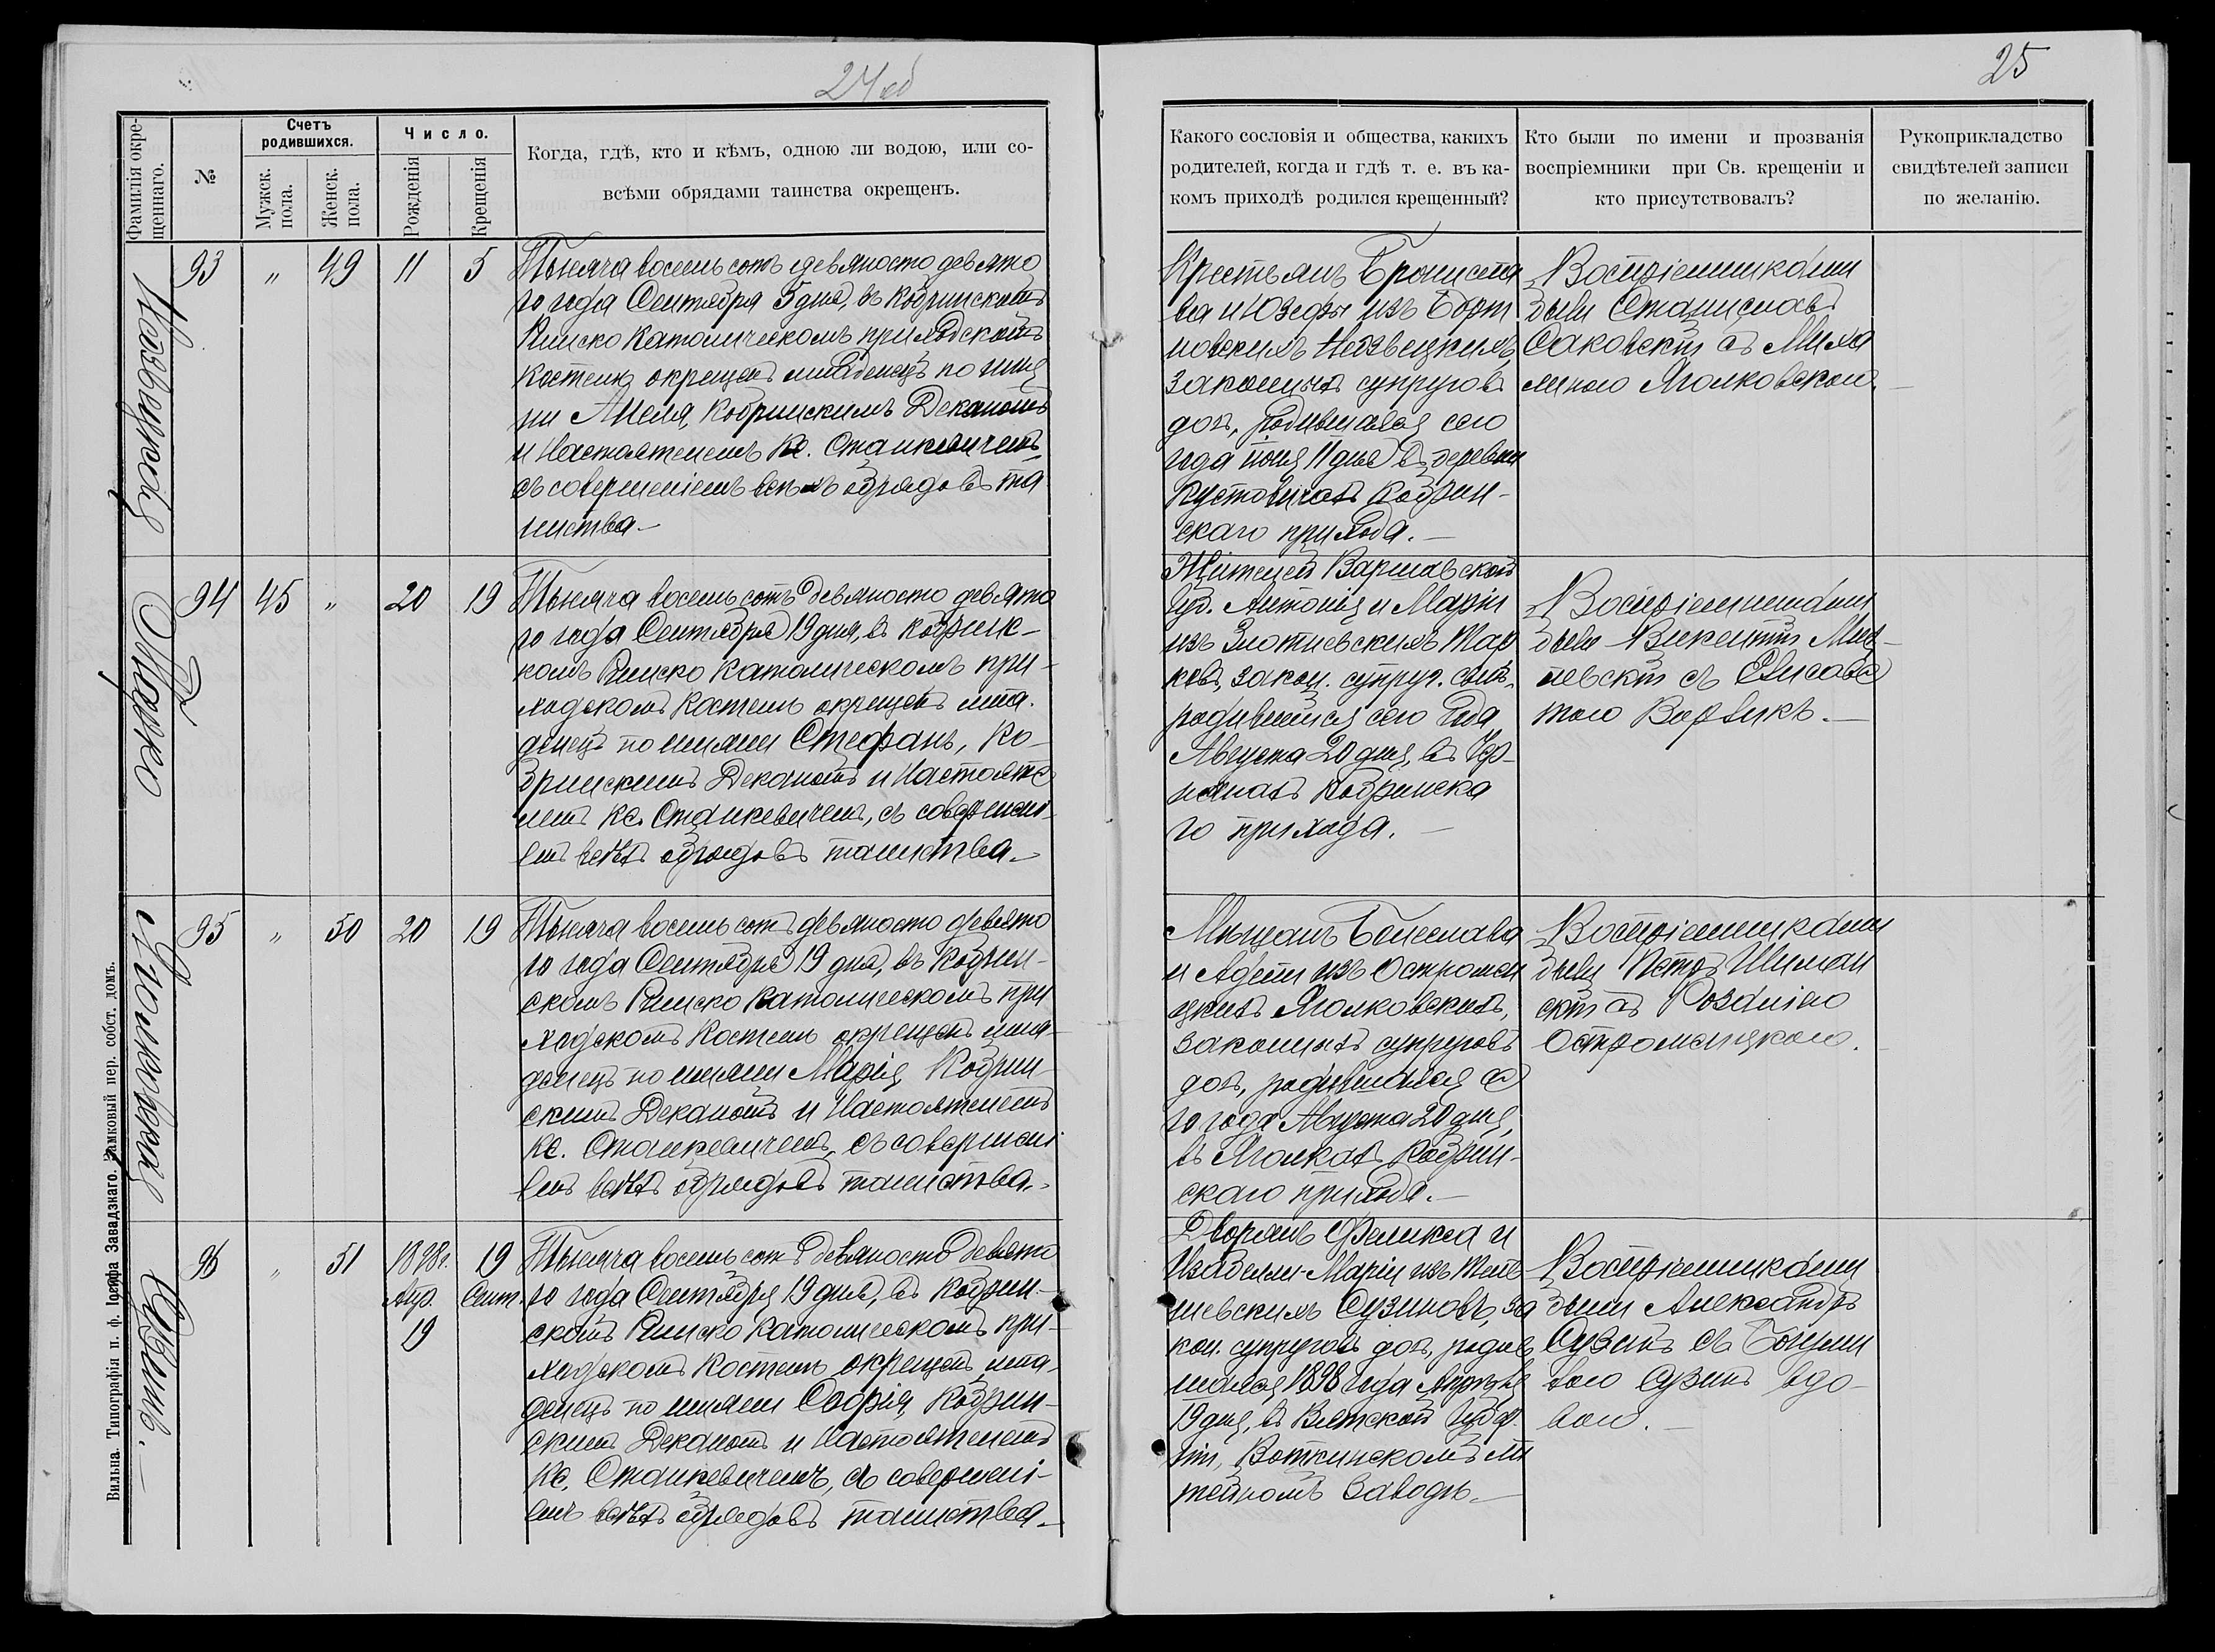 24об
25
Фамилія окре-
щеннаго.
№
Счетъ
родившихся.
Мужск.
пола.
Женск.
пола.
Число.
Рожденія
Крещенія
Когда, гдѣ, кто и кѣмъ, одною ли водою, или со-
всѣми обрядами таинства окрещенъ.
Какого сословія и общества, какихъ
родителей, когда и гдѣ т. е. въ ка-
комъ приходѣ родился крещенный?
Кто были по имени и прозванія
воспріемники при Св. крещеніи и
кто присутствовалъ?
Рукоприкладство
свидѣтелей записи
по желанію.
93
"
49
11
5
Тысяча восемь сотъ девяносто девято
го года Сентября 5 дня, въ Кобринскомъ
Римско Католическомъ приходскомъ
Костелѣ окрещенъ младенецъ по име
ни Анеля, Кобринскимъ Деканомъ
и Настоятелемъ Кс. Станкевичемъ
съ совершеніемъ всѣхъ обрядовъ та
инства.
Крестьянъ Бронисла
ва и Юзефы изъ Борт
новскихъ
законныхъ супруговъ
дочь, родившаяся сего
года Іюля 11 дня въ деревни
Пустовичахъ Кобрин-
скаго прихода.
Воспріемниками
были Станиславъ
Саковскій съ Миха
линою Яголковскою.
Тарко
94
45
"
20
19
Тысяча восемь сотъ девяносто девято
го года Сентября 19 дня, въ Кобринс-
комъ Римско Католическомъ при-
ходскомъ Костелѣ окрещенъ мла-
денецъ по имени Стефанъ, Ко-
бринскимъ Деканомъ и Настояте
лемъ Кс. Станкевичемъ, съ совершені-
емъ всѣхъ обрядовъ таинства.
Жителей Варшавской
Губ. Антонія и Маріи
изъ Злотневскихъ Тар
ковъ, закон. супруг. сынъ,
родившійся сего года
Августа 20 дня, въ
Кобринска
го прихода.
Воспріемниками
были Викентій
съ Елисаве
тою
Яголковскій
95
"
50
20
19
Тысяча восемь сотъ девяносто девято
го года Сентября 19 дня, въ Кобрин-
скомъ Римско Католическомъ при
ходскомъ Костелѣ окрещенъ мла-
денецъ по имени Марія, Кобрин-
скимъ Деканомъ и Настоятелемъ
Кс. Станкевичемъ, съ совершені
емъ всѣхъ обрядовъ таинства.
Мѣщанъ Болеслава
и Адели изъ Остромен
цкихъ Яголковскихъ,
законныхъ супруговъ
дочь, родившаяся се
го года Августа 20 дня,
въ Яголкахъ Кобрин-
скаго прихода.
Воспріемниками
были Петръ Шиман
скій съ Розаліею
Остроменцкою.
Сузинъ.
96
"
51
1898г.
Апр.
19
19
Сент.
Тысяча восемь сотъ девяносто девято
го года Сентября 19 дня, въ Кобрин-
скомъ Римско Католическомъ при-
ходскомъ Костелѣ окрещенъ мла-
денецъ по имени Софія, Кобрин-
скимъ Деканомъ и Настоятелемъ
Кс. Станкевичемъ, съ совершені-
емъ всѣхъ обрядовъ таинства.
Дворянъ Феликса и
Изабелли-Маріи изъ
Сузиновъ, за
кон. супруговъ дочь, родив
шаяся 1898 года Апрѣля
19 дня, въ Вятской Губер
ніи, Воткинскомъ ли
тейномъ Заводѣ.
Воспріемниками
были Александръ
Сузинъ съ Богуми
лою Сузинъ вдо-
вою.
Вильна. Типографія п. ф. Іосифа Завадзкаго. Замковый пер. собст. домъ.